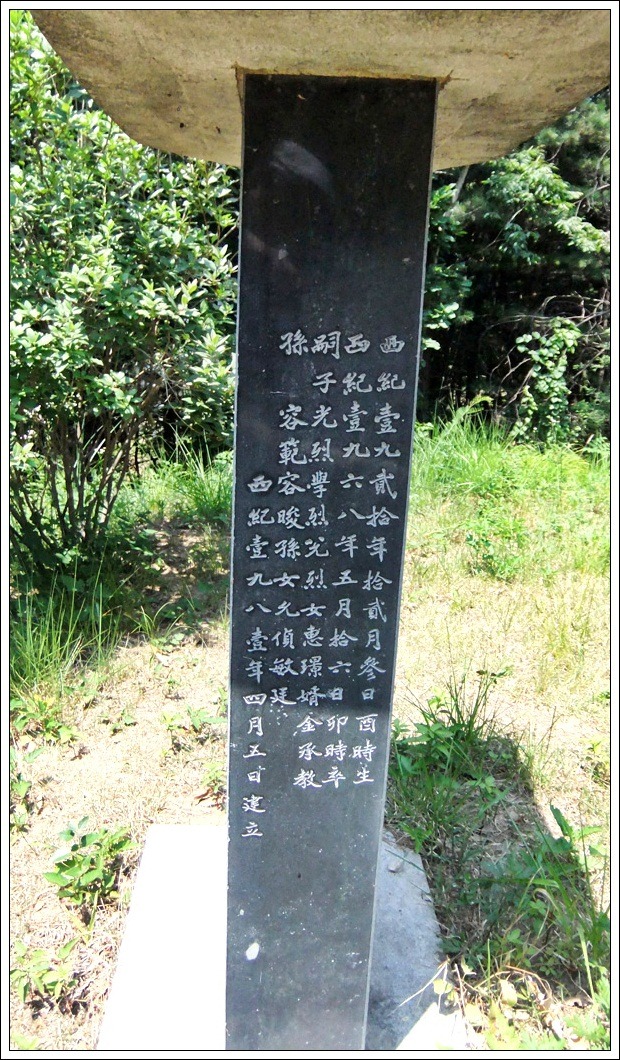 西紀壹九貳拾年拾貳月參日酉時生
西紀壹九六八年五月拾六日卯時卒
嗣子光烈學烈允烈女惠璟婿金承敎
孫容範容晙孫女允偵敏廷
西紀壹九八壹年四月五日建立